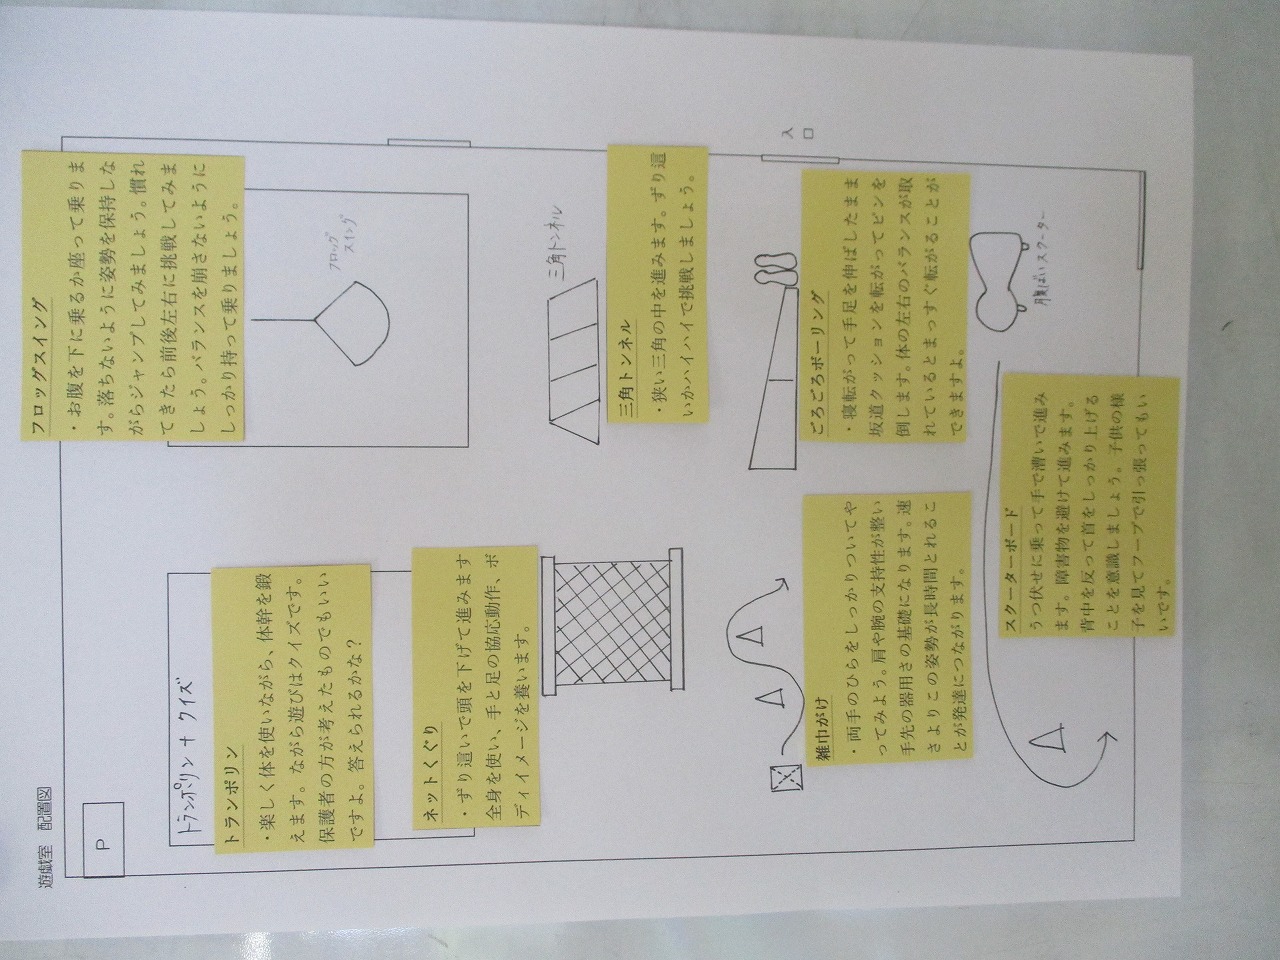 遊戯室 配置図
P
トランポリン + クイズ
トランポリン
・楽しく体を使いながら、体幹を鍛
えます。ながら遊びはクイズです。
保護者の方が考えたものでもいい
ですよ。答えられるかな？
フロッグスイング
・お腹を下に乗るか座って乗りま
す。落ちないように姿勢を保持しな
がらジャンプしてみましょう。慣れ
てきたら前後左右に挑戦してみま
しょう。バランスを崩さないように
しっかり持って乗りましょう。
フロッグ
スイング
ネットくぐり
・ずり這いで頭を下げて進みます
全身を使い、手と足の協応動作、ボ
ディイメージを養います。
三角トンネル
三角トンネル
・狭い三角の中を進みます。ずり這
いかハイハイで挑戦しましょう。
入
口
雑巾がけ
・両手のひらをしっかりついてや
ってみよう。肩や腕の支持性が整い
手先の器用さの基礎になります。速
さよりこの姿勢が長時間とれるこ
とが発達につながります。
ごろごろボーリング
・寝転がって手足を伸ばしたまま
坂道クッションを転がってピンを
倒します。体の左右のバランスが取
れているとまっすぐ転がることが
できますよ。
スクーターボード
うつ伏せに乗って手で漕いで進み
ます。障害物を避けて進みます。
背中を反って首をしっかり上げる
ことを意識しましょう。子供の様
子を見てフープで引っ張ってもい
いです。
腹ばいスクーター